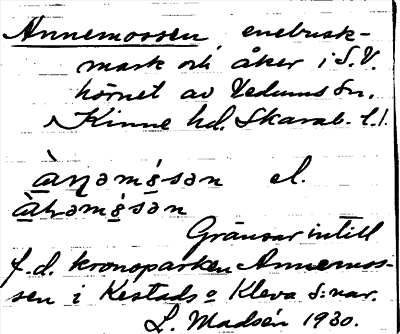 Annemossen, enebusk-
mark och åker i S.V.
hörnet av Vedums Sn.
Kinne hd. Skarab. l.
àṉəmɩ̀sən el.
àtrəmɩ̀sən
Gränsar intill
f.d. kronoparken Annemos-
sen i Kestads o Kleva s:nar.
L. Madsén 1930.